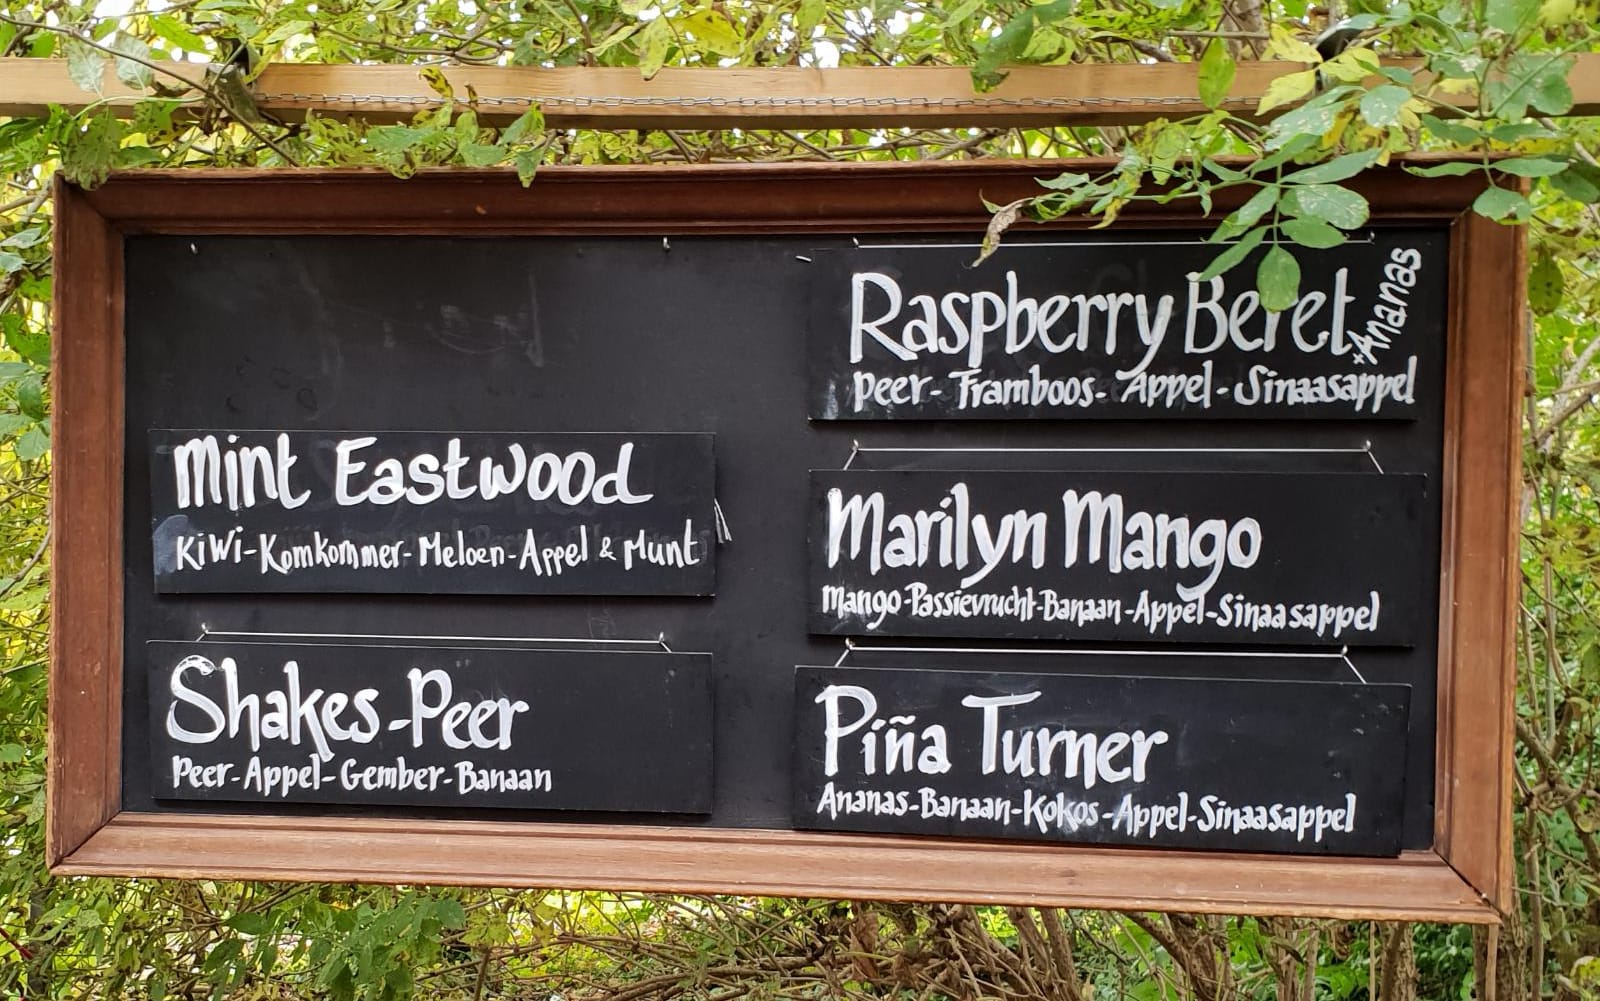 Mint Eastwood
Kiwi-Komkommer-Meloen-Appel & Munt
Shakes-Peer
Peer-Appel-Gember-Banaan
Raspberry Beret
+Ananas
Peer-Framboos-Appel-Sinaasappel
Marilyn Mango
Mango-Passievrucht-Banaan-Appel-Sinaasappel
Piña Turner
Ananas-Banaan-Kokos-Appel-Sinaasappel